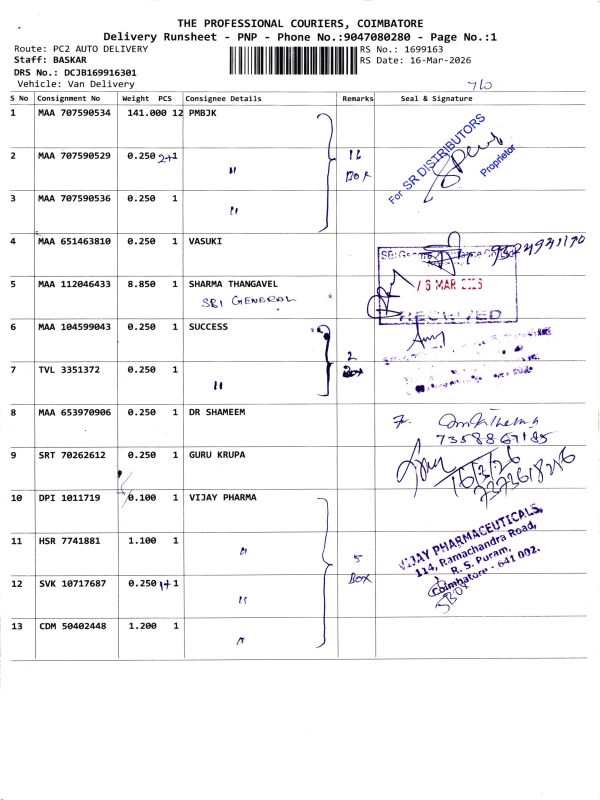 THE PROFESSIONAL COURIERS, COIMBATORE
Delivery Runsheet - PNP - Phone No.:9047080280 - Page No.:1
Route: PC2 AUTO DELIVERY RS No.: 1699163
Staff: BASKAR RS Date: 16-Mar-2026
DRS No.: DCJB169916301
Vehicle: Van Delivery
S No Consignment No Weight PCS Consignee Details Remarks Seal & Signature
1 MAA 707590534 141.000 12 PMBJK
For SR DISTRIBUTORS
Proprietor
2 MAA 707590529 0.250 2+1 " 16
Box
3 MAA 707590536 0.250 1 "
4 MAA 651463810 0.250 1 VASUKI
5 MAA 112046433 8.850 1 SHARMA THANGAVEL
SBI GENERAL
16 MAR 2026
RECEIVED
6 MAA 104599043 0.250 1 SUCCESS
2
Box
7 TVL 3351372 0.250 1 "
8 MAA 653970906 0.250 1 DR SHAMEEM
9 SRT 70262612 0.250 1 GURU KRUPA
16/3/26
10 DPI 1011719 0.100 1 VIJAY PHARMA
VIJAY PHARMACEUTICALS,
114, Ramachandra Road,
R. S. Puram,
Coimbatore - 641 002.
11 HSR 7741881 1.100 1 "
5
Box
12 SVK 10717687 0.250 1+1 "
13 CDM 50402448 1.200 1 "